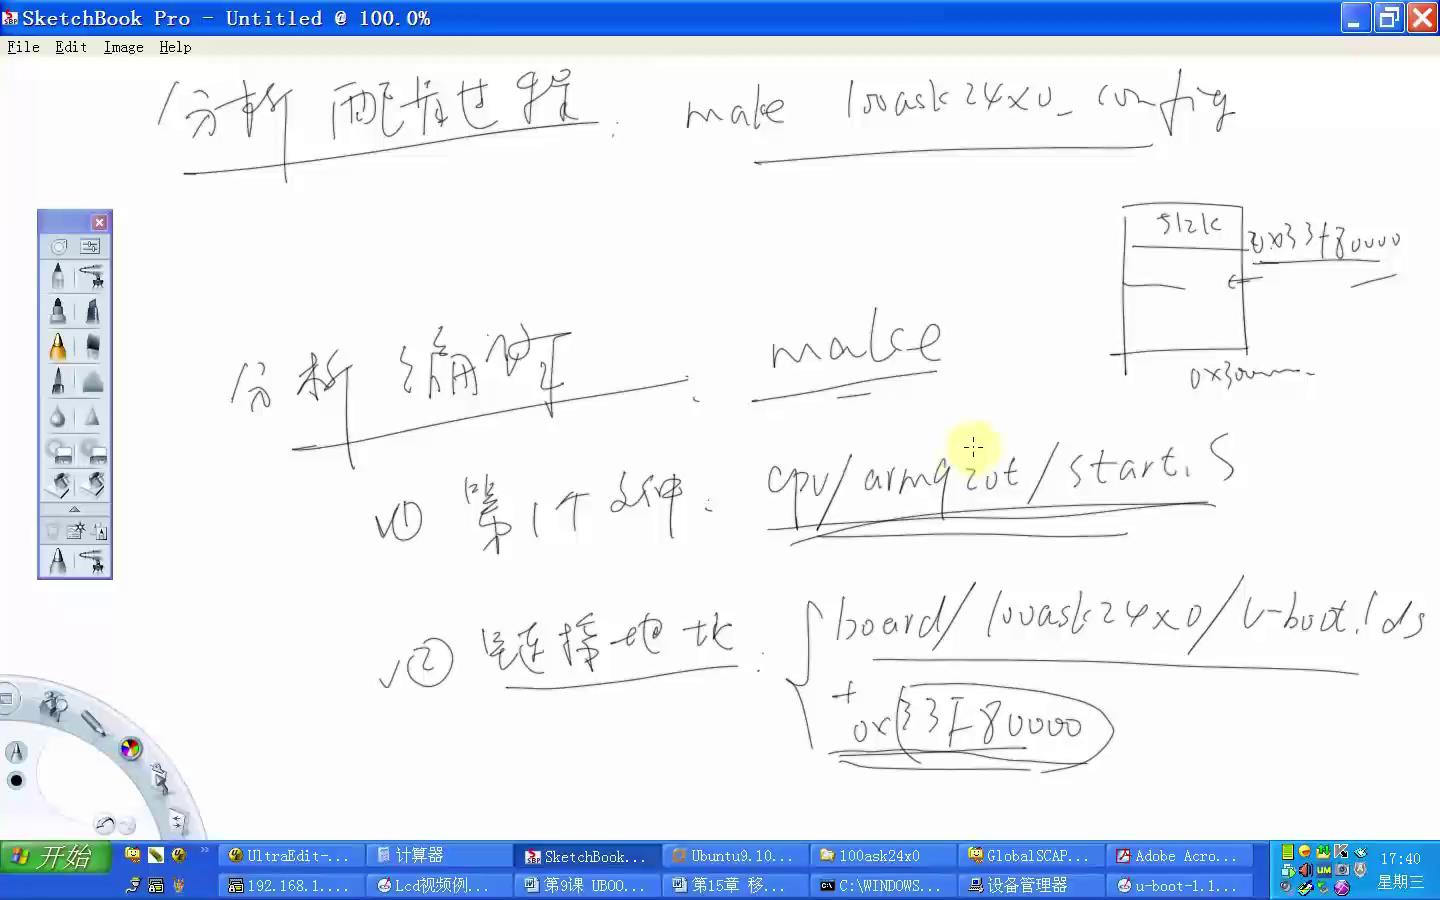 SketchBook Pro - Untitled @ 100.0%
File Edit Image Help
分析配置过程: make 100ask24x0_config
512K
0x33f80000
0x300
分析编译: make
① 第1个文件: cpu/arm920t/start.S
② 链接地址: board/100ask24x0/u-boot.lds
+ 0x33F80000
开始
UltraEdit-...
计算器
SketchBook...
Ubuntu9.10...
100ask24x0
GlobalSCAP...
Adobe Acro...
17:40
192.168.1....
Lcd视频例...
第9课 UBOO...
第15章 移...
C:\WINDOWS...
设备管理器
u-boot-1.1...
星期三